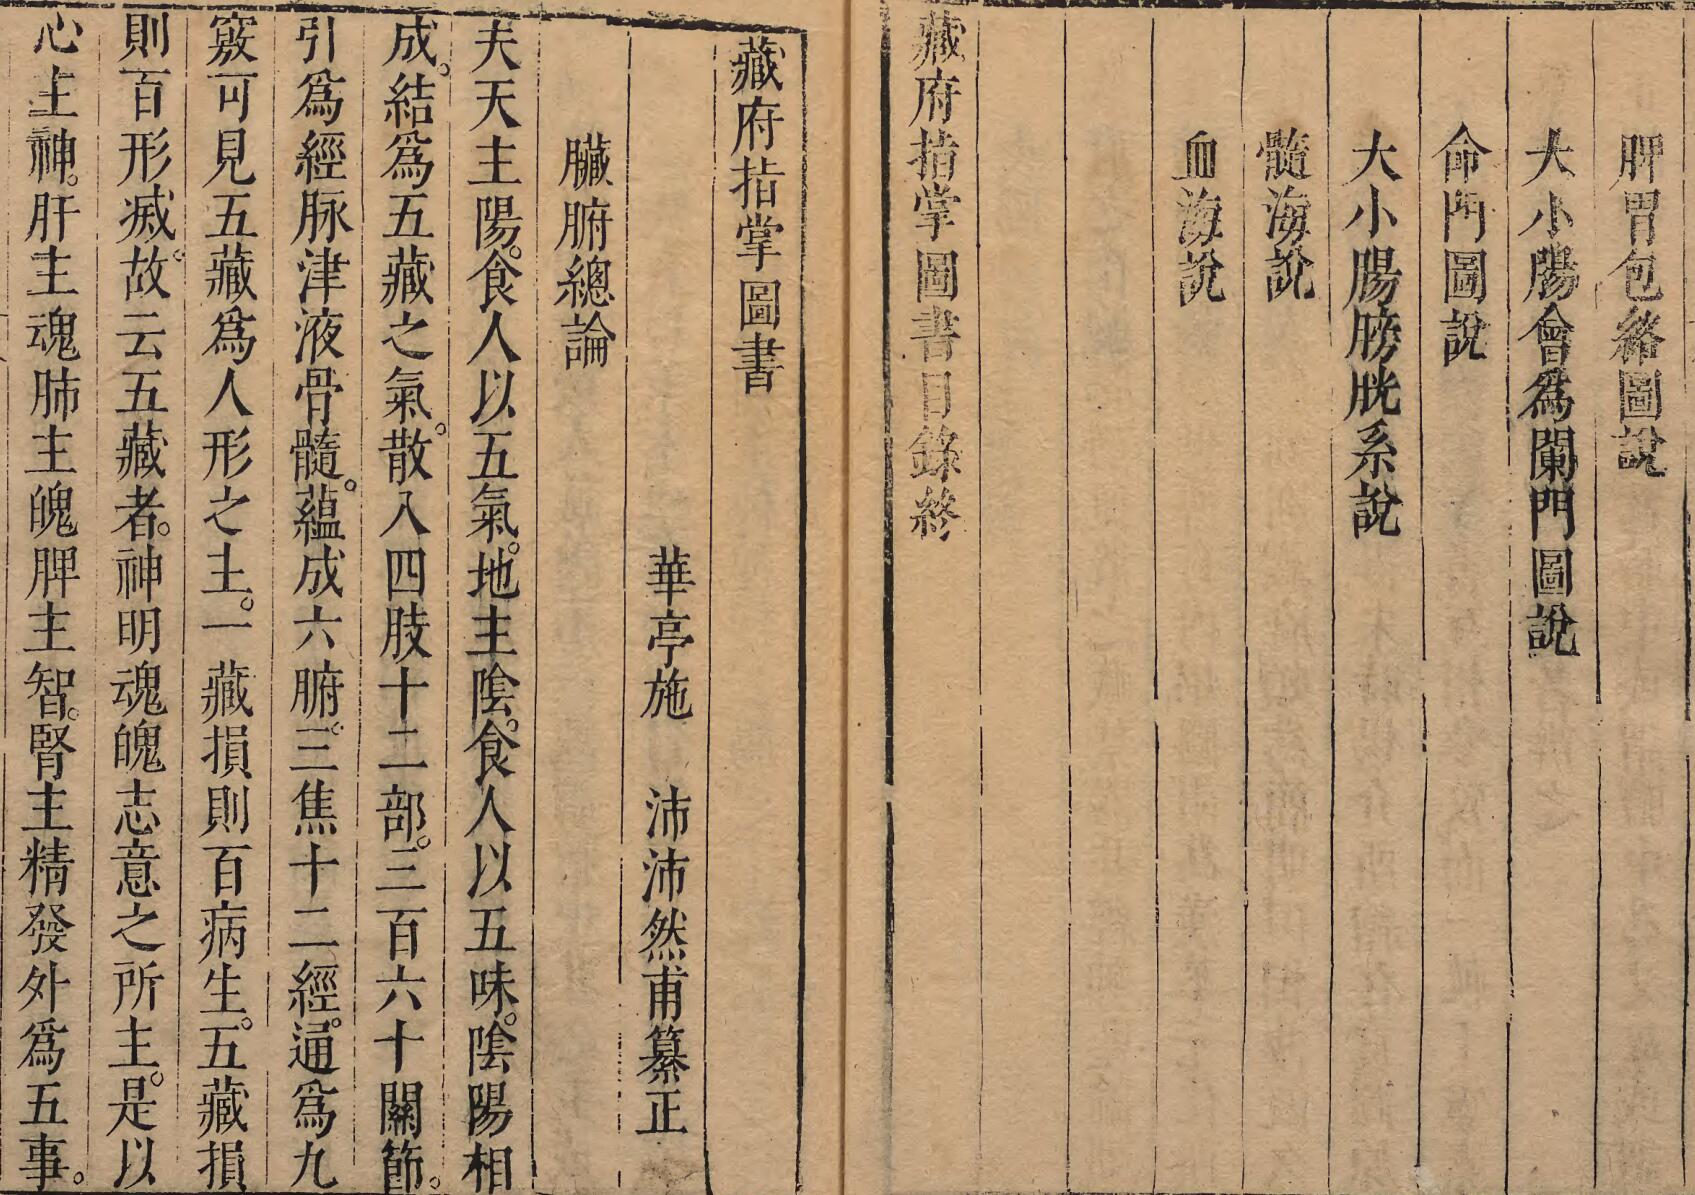 脾胃包絡圖說
大小腸會為闌門圖說
命門圖說
大小腸膀胱系說
髓海說
血海說
藏府指掌圖書目錄終
藏府指掌圖書
華亭施 沛沛然甫纂正
臟腑總論
夫天主陽。食人以五氣。地主陰。食人以五味。陰陽相
成。結爲五藏之氣。散入四肢十二部。三百六十關節。
引爲經脉津液骨髓。蘊成六腑。三焦十二經。通爲九
竅可見五藏爲人形之主。一藏損則百病生。五藏損
則百形滅。故云五藏者。神明魂魄志意之所主。是以
心主神。肝主魂肺主魄脾主智。腎主精發外爲五事。